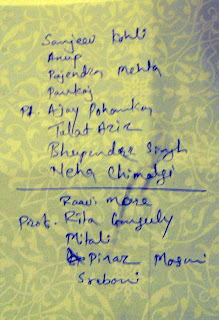 Sanjeev Kohli
Anup
Rajendra Mehta
Pankaj
Pt. Ajay Pohankar
Talat Aziz
Bhupendar Singh
Neha Chimalgi
Raavi more
Prof. Rita Ganguly
Mitali
Pinaz Masani
Sraboni